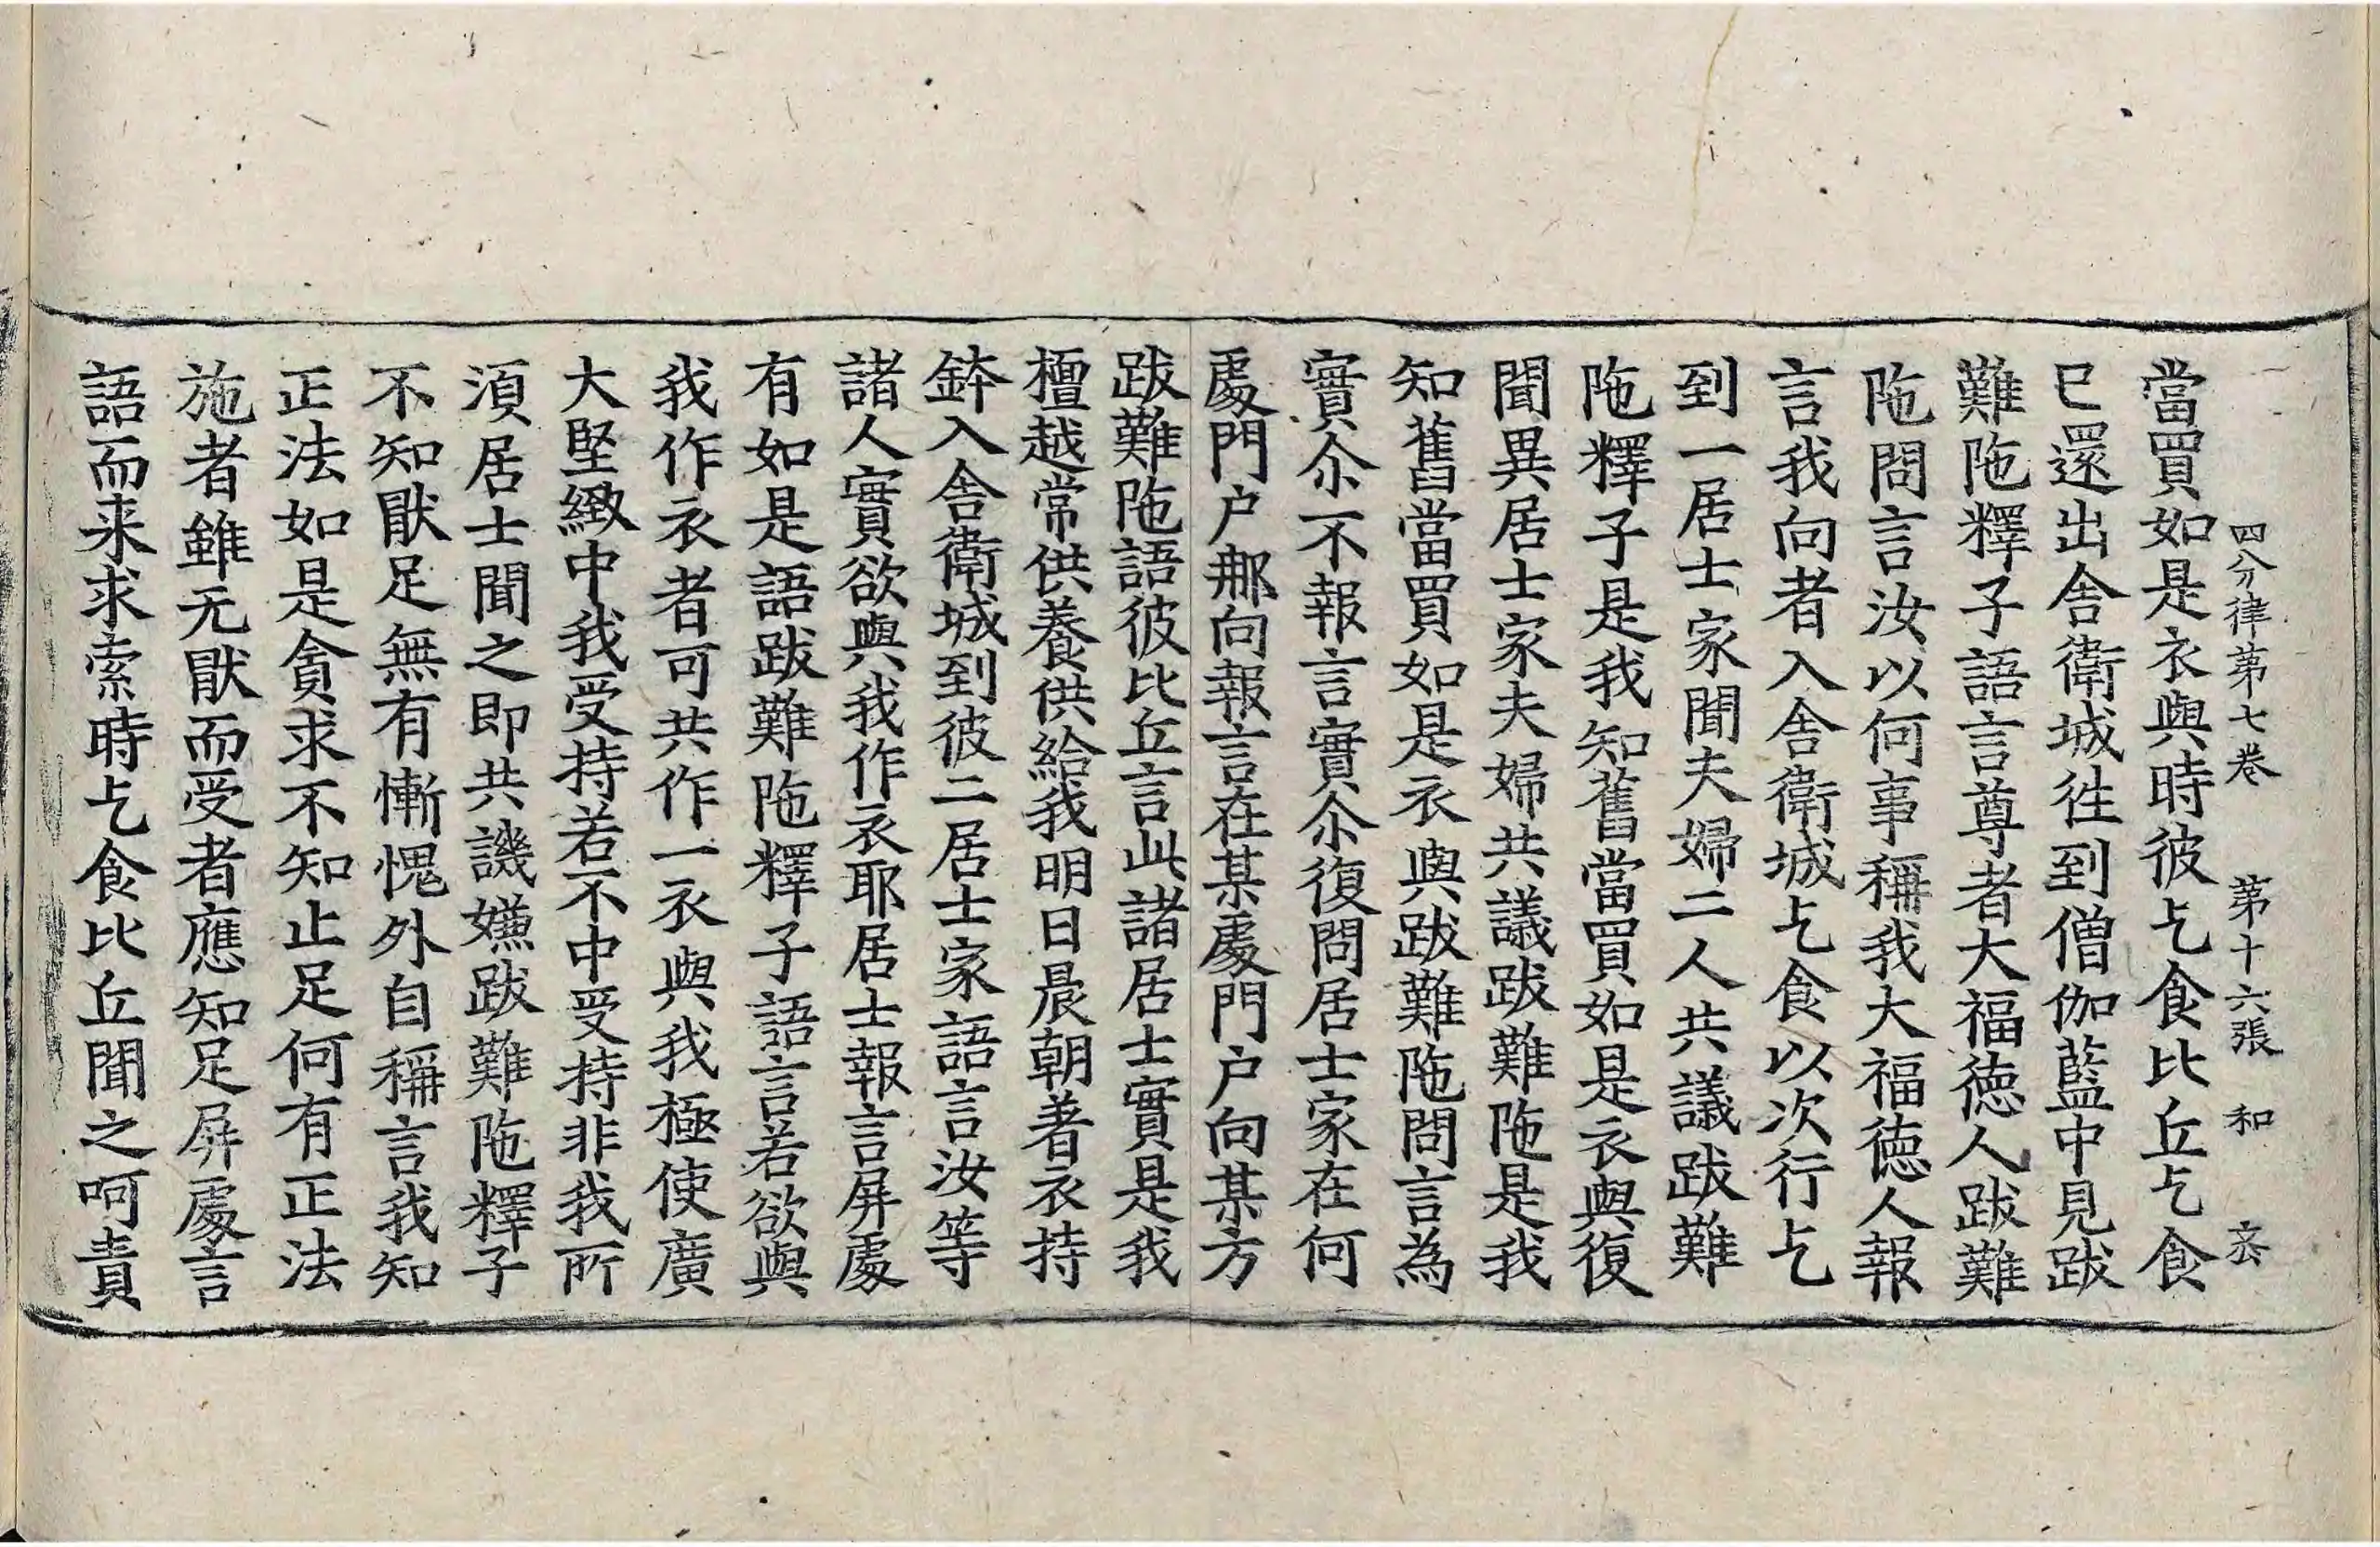 四分律第七卷 第十六張 和
當買如是衣與時彼乞食比丘乞食
已還出舍衛城徃到僧伽藍中見跋
難陁釋子語言尊者大福德人跋難
陁問言汝以何事稱我大福德人報
言我向者入舍衛城乞食以次行乞
到一居士家聞夫婦二人共議跋難
陁釋子是我知舊當買如是衣與復
聞異居士家夫婦共議跋難陁是我
知舊當買如是衣與跋難陁問言為
實尒不報言實尒復問居士家在何
處門户那向報言在某處門户向某方
跋難陁語彼比丘言此諸居士實是我
檀越常供養供給我明日晨朝著衣持
鉢入舍衛城到彼二居士家語言汝等
諸人實欲與我作衣耶居士報言屏處
有如是語跋難陁釋子語言若欲與
我作衣者可共作一衣與我極使廣
大堅緻中我受持若不中受持非我所
湏居士聞之即共譏嫌跋難陁釋子
不知猒足無有慚愧外自稱言我知
正法如是貪求不知止足何有正法
施者雖无猒而受者應知足屏處言
語而来求索時乞食比丘聞之呵責